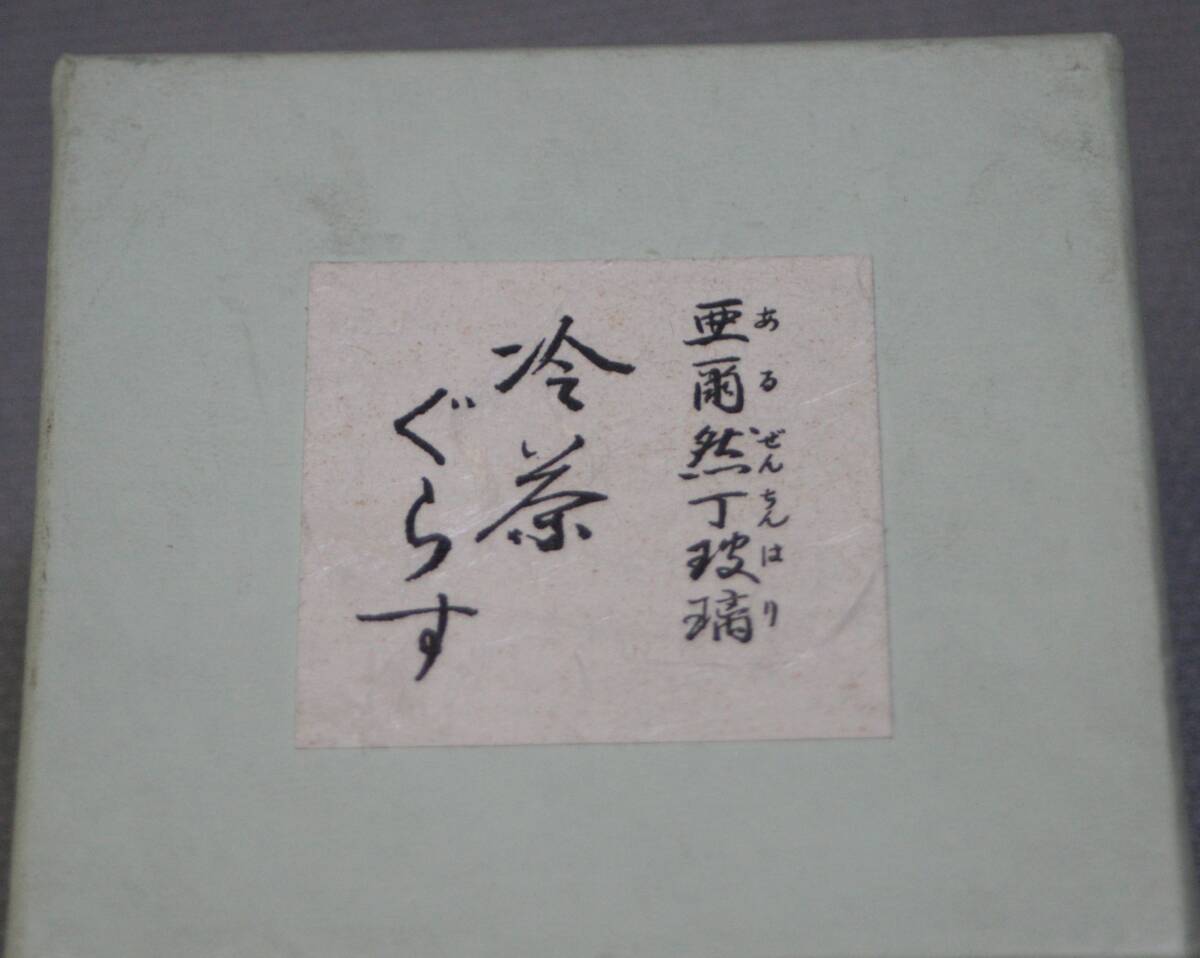 亜爾然丁玻璃
あるぜんちんはり
冷茶
ぐらす